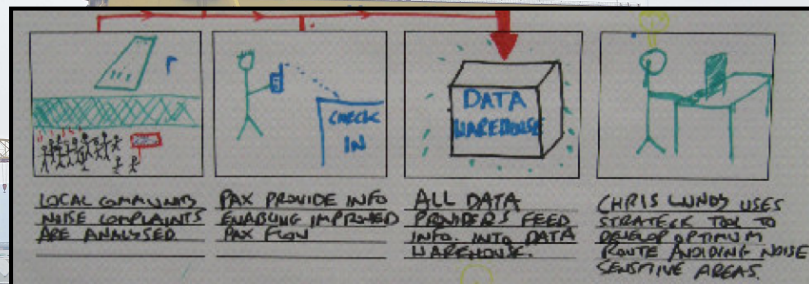 CHECK
IN
DATA
WAREHOUSE
LOCAL COMMUNITY
NOISE COMPLAINTS
ARE ANALYSED.
PAX PROVIDE INFO
ENABLING IMPROVED
PAX FLOW
ALL DATA
PROVIDERS FEED
INFO. INTO DATA
WAREHOUSE.
CHRIS LUNDY USES
TOOL TO
DEVELOP OPTIMUM
ROUTE AVOIDING NOISE
SENSITIVE AREAS.